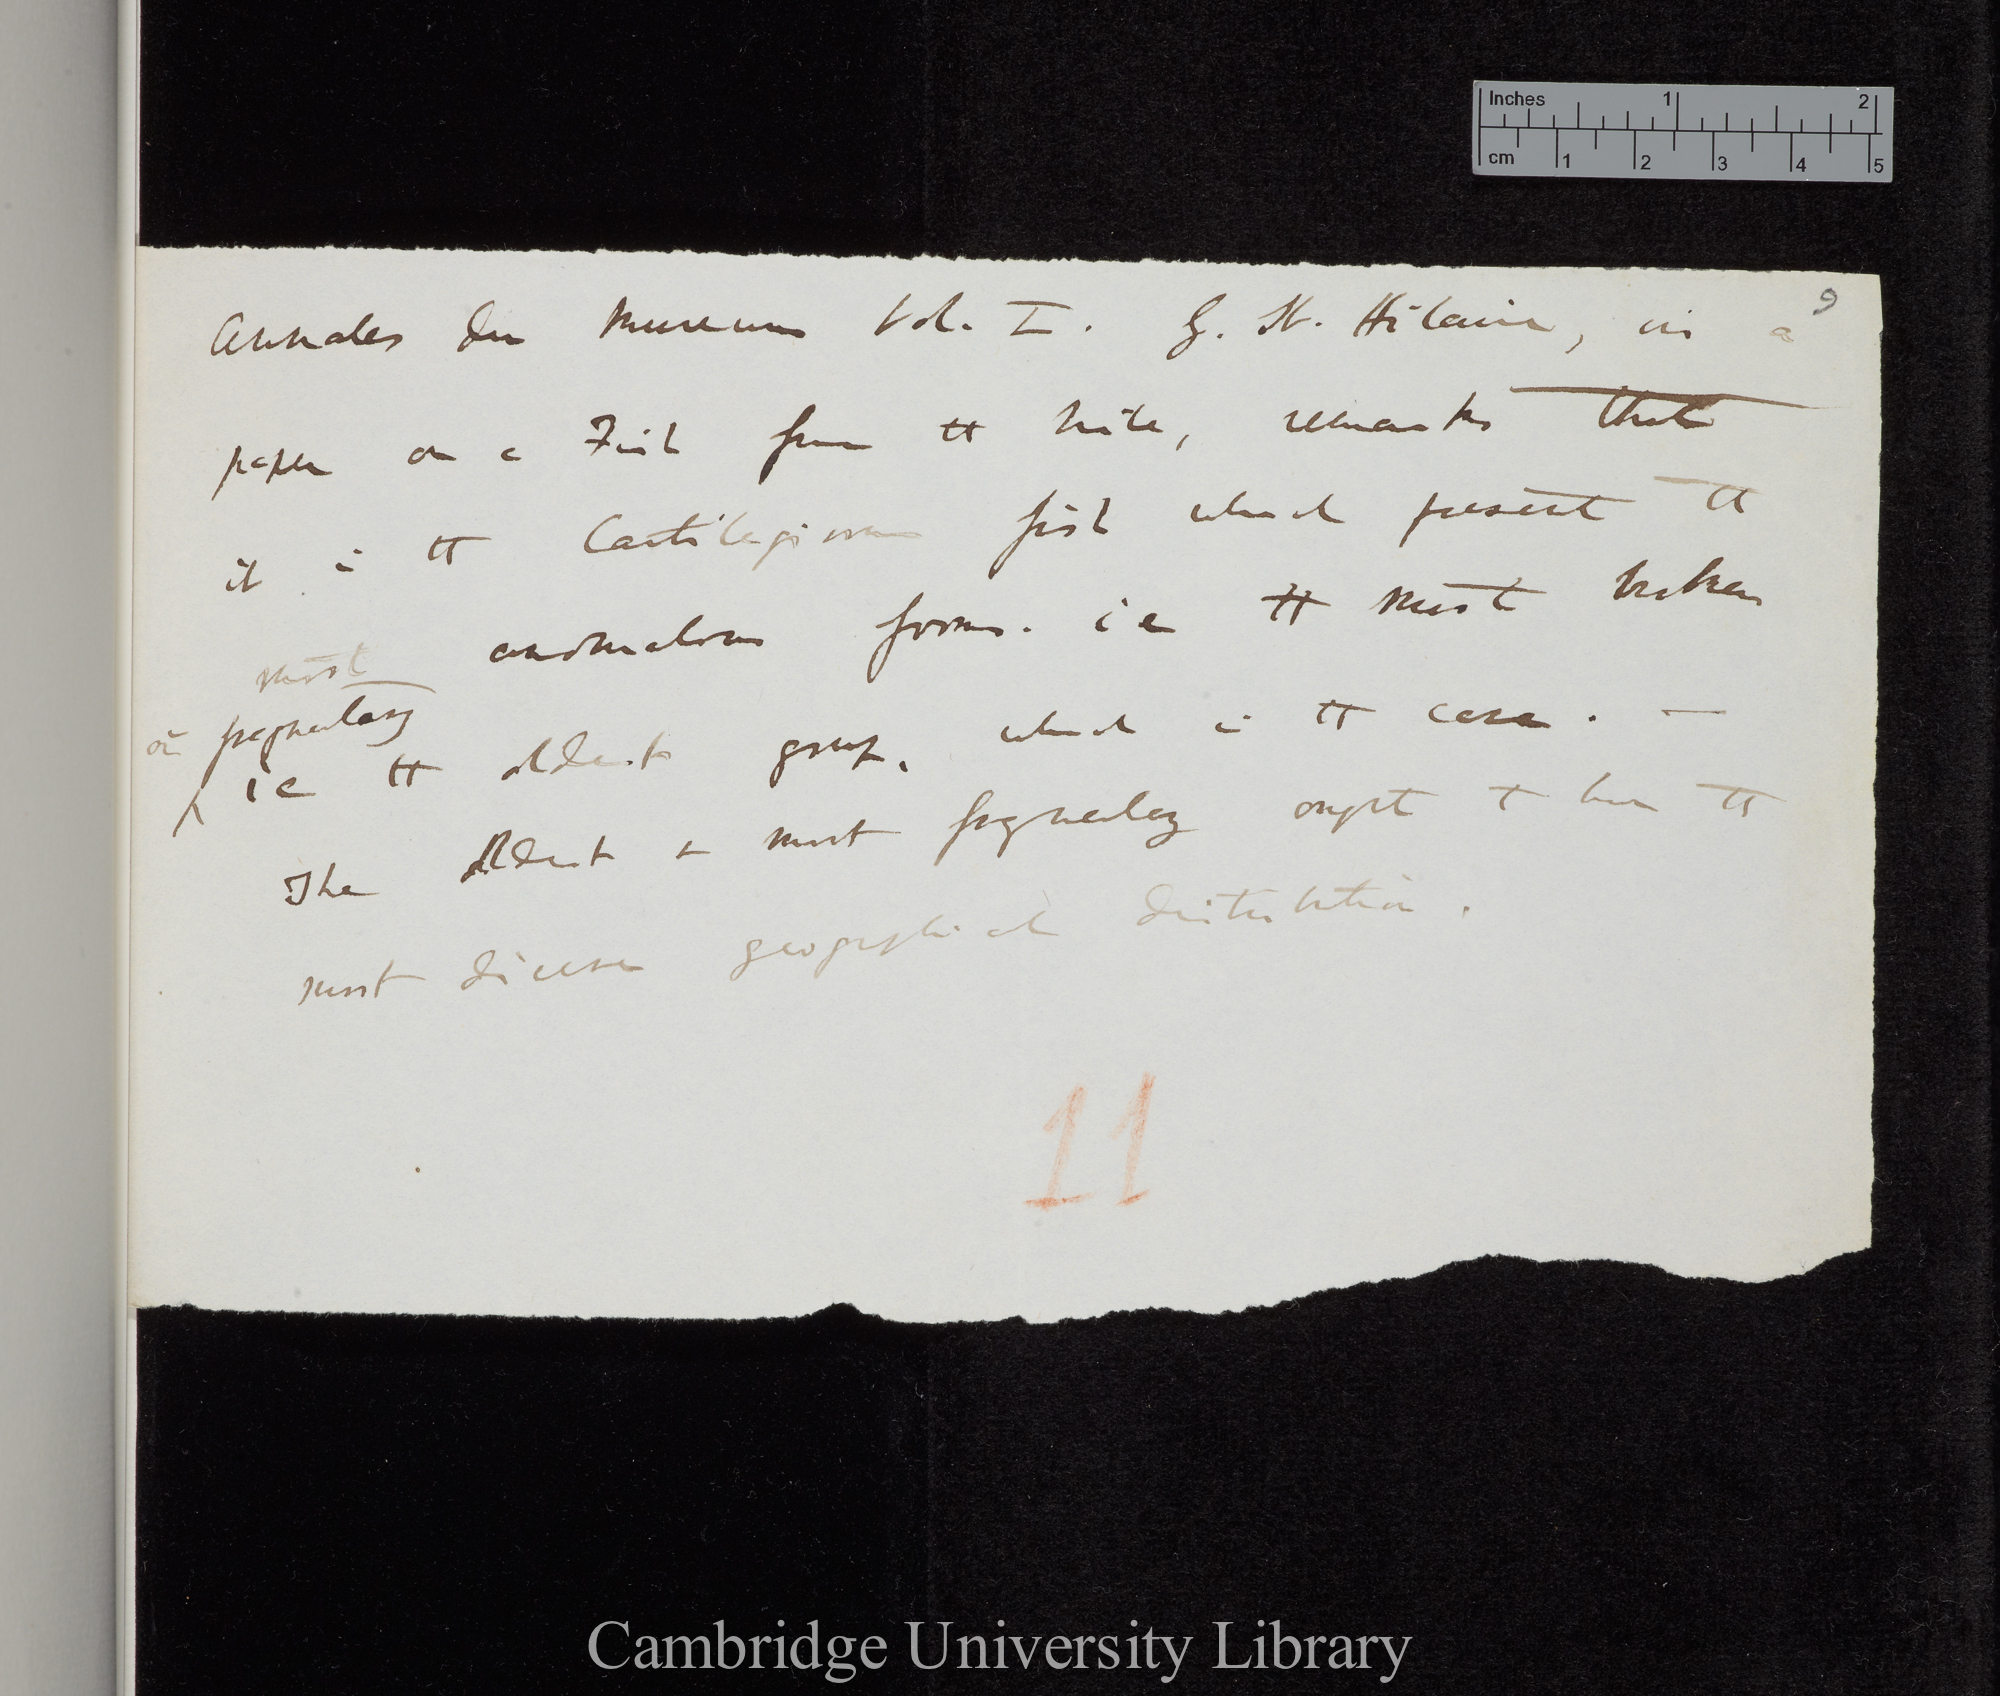 Inches 1 2
cm 1 2 3 4 5
9
Annales du Museum Vol. I. G. St. Hilaire, in a
paper on a Fish from the Nile, remarks that
it is the Cartilaginous fish which present the
most anomalous forms. i e the most broken
or fragmentary
i e the oldest group, which is the case. —
The oldest & most fragmentary ought to have the
most diverse geographical distribution.
11
Cambridge University Library